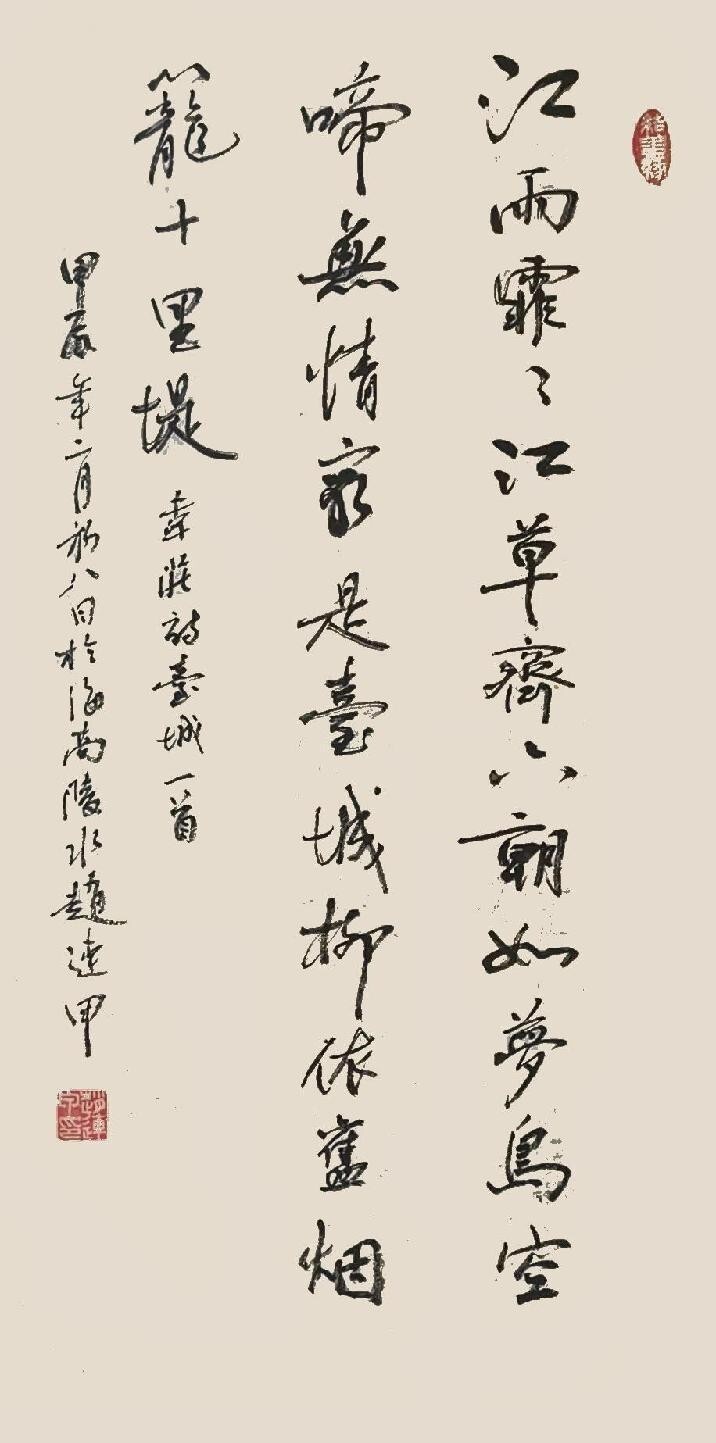 江雨霏々江草齊六朝如夢鳥空
啼無情最是臺城柳依舊烟
籠十里堤
韋莊詩臺城一首
甲辰年二月初八日於海南陵水趙連甲
趙連甲印